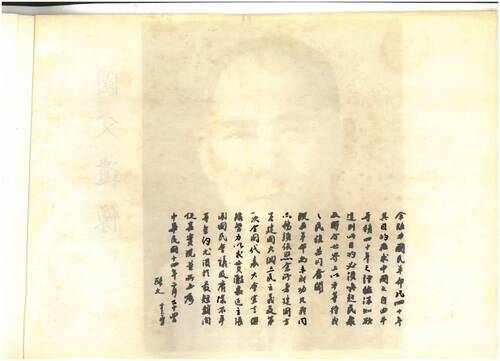 余致力國民革命凡四十年
其目的在求中國之自由平
等積四十年之經驗深知欲
達到此目的必須喚起民眾
及聯合世界上以平等待我
之民族共同奮鬥
現在革命尚未成功凡我同
志務須依照余所著建國方
略建國大綱三民主義及第
一次全國代表大會宣言繼
續努力以求貫徹最近主張
開國民會議及廢除不平
等條約尤須於最短期間
促其實現是所至囑
中華民國十四年二月二十四日
孫文
國父遺像